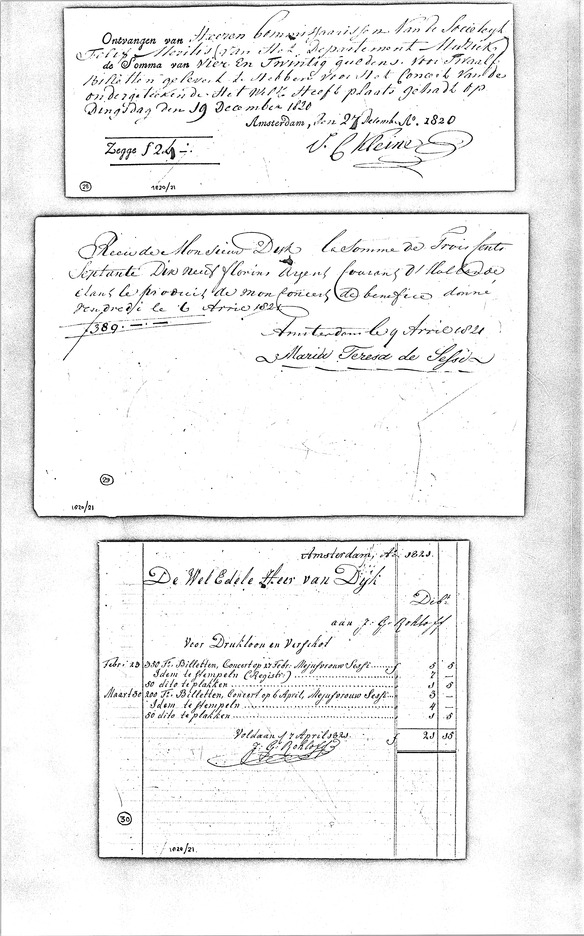 Ontvangen van Heeren Commissarissen van de Societeyt
Felix Meritis (van Het Departement Muziek)
de Somma van Vier en Twintig guldens, voor Twaalf
Billetten gelevert te Hebben voor Het Concert van de
ondergeteekende Het Welk Heeft plaats gehadt op
Dingsdag den 19 December 1820
Amsterdam, den 27 Decemb. Ao. 1820
Zegge ƒ 24 -:
J. C. Kleine
28
1820/21
Recu de Monsieur Dyk la Somme de Trois Cents
Septante Dix neuf florins Argent Courant d'Hollande
étant le produit de mon Concert de benefice donné
vendredi le 6 Avril 1821
ƒ389.—.—
Amsterdam le 9 Avril 1821
Maria Teresa de Sessi
29
1820/21
Amsterdam, Ao. 1821.
De WelEdele Heer van Dijk
Debt.
aan J. G. Rohloff
Voor Drukloon en Verschot
Febr. 23 350 Fr. Billetten, Concert op 27 Febr. Mejufvrouw Sessi ƒ 5 5
Idem te stempeln (Registr.) 7 —
50 dito te plakken 1 5
Maart 30 200 Fr. Billetten, Concert op 6 April, Mejufvrouw Sessi 3 —
Idem te stempeln 4 —
50 dito te plakken 1 5
Voldaan 17 April 1821 ƒ 21 15
J. G. Rohloff
30
1820/21